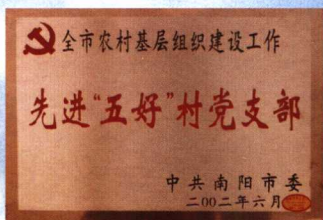 全市农村基层组织建设工作
先进“五好”村党支部
中共南阳市委
二〇〇二年六月